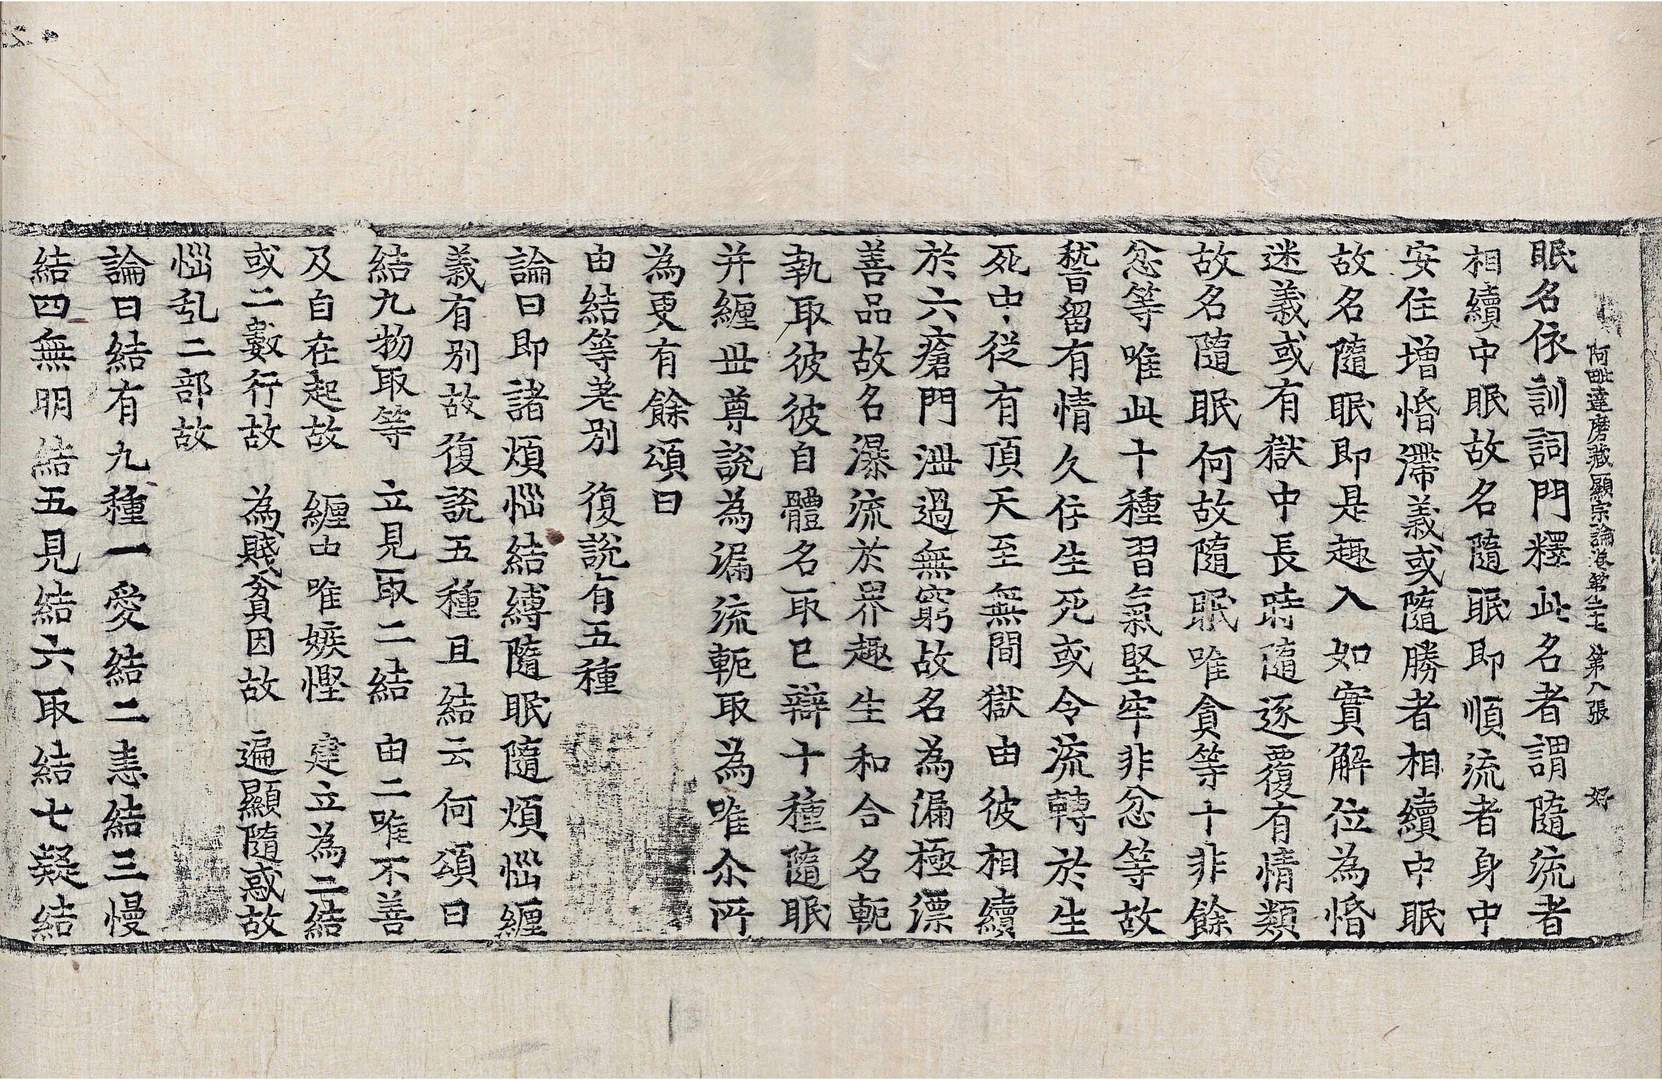 阿毗達磨藏顯宗論卷第二十七 第八張 好
眠名依訓詞門釋此名者謂隨流者
相續中眠故名隨眠即順流者身中
安住增惛滯義或隨勝者相續中眠
故名隨眠即是趣入如實解位為惛
迷義或有獄中長時隨逐覆有情類
故名隨眠何故隨眠唯貪等十非餘
忿等唯此十種習氣堅牢非忿等故
稽留有情久住生死或令流轉於生
死中從有頂天至無間獄由彼相續
於六瘡門泄過無窮故名為漏極漂
善品故名瀑流於界趣生和合名軛
執取彼彼自體名取已辯十種隨眠
并纏世尊說為漏流軛取為唯尒所
為更有餘頌曰
由結等差別　復說有五種
論曰即諸煩惱結縛隨眠隨煩惱纏
義有別故復說五種且結云何頌曰
結九物取等　立見取二結　由二唯不善
及自在起故　纏中唯嫉慳　建立為二結
或二數行故　為賤貧因故　遍顯隨惑故
惱乱二部故
論曰結有九種一愛結二恚結三慢
結四無明結五見結六取結七疑結